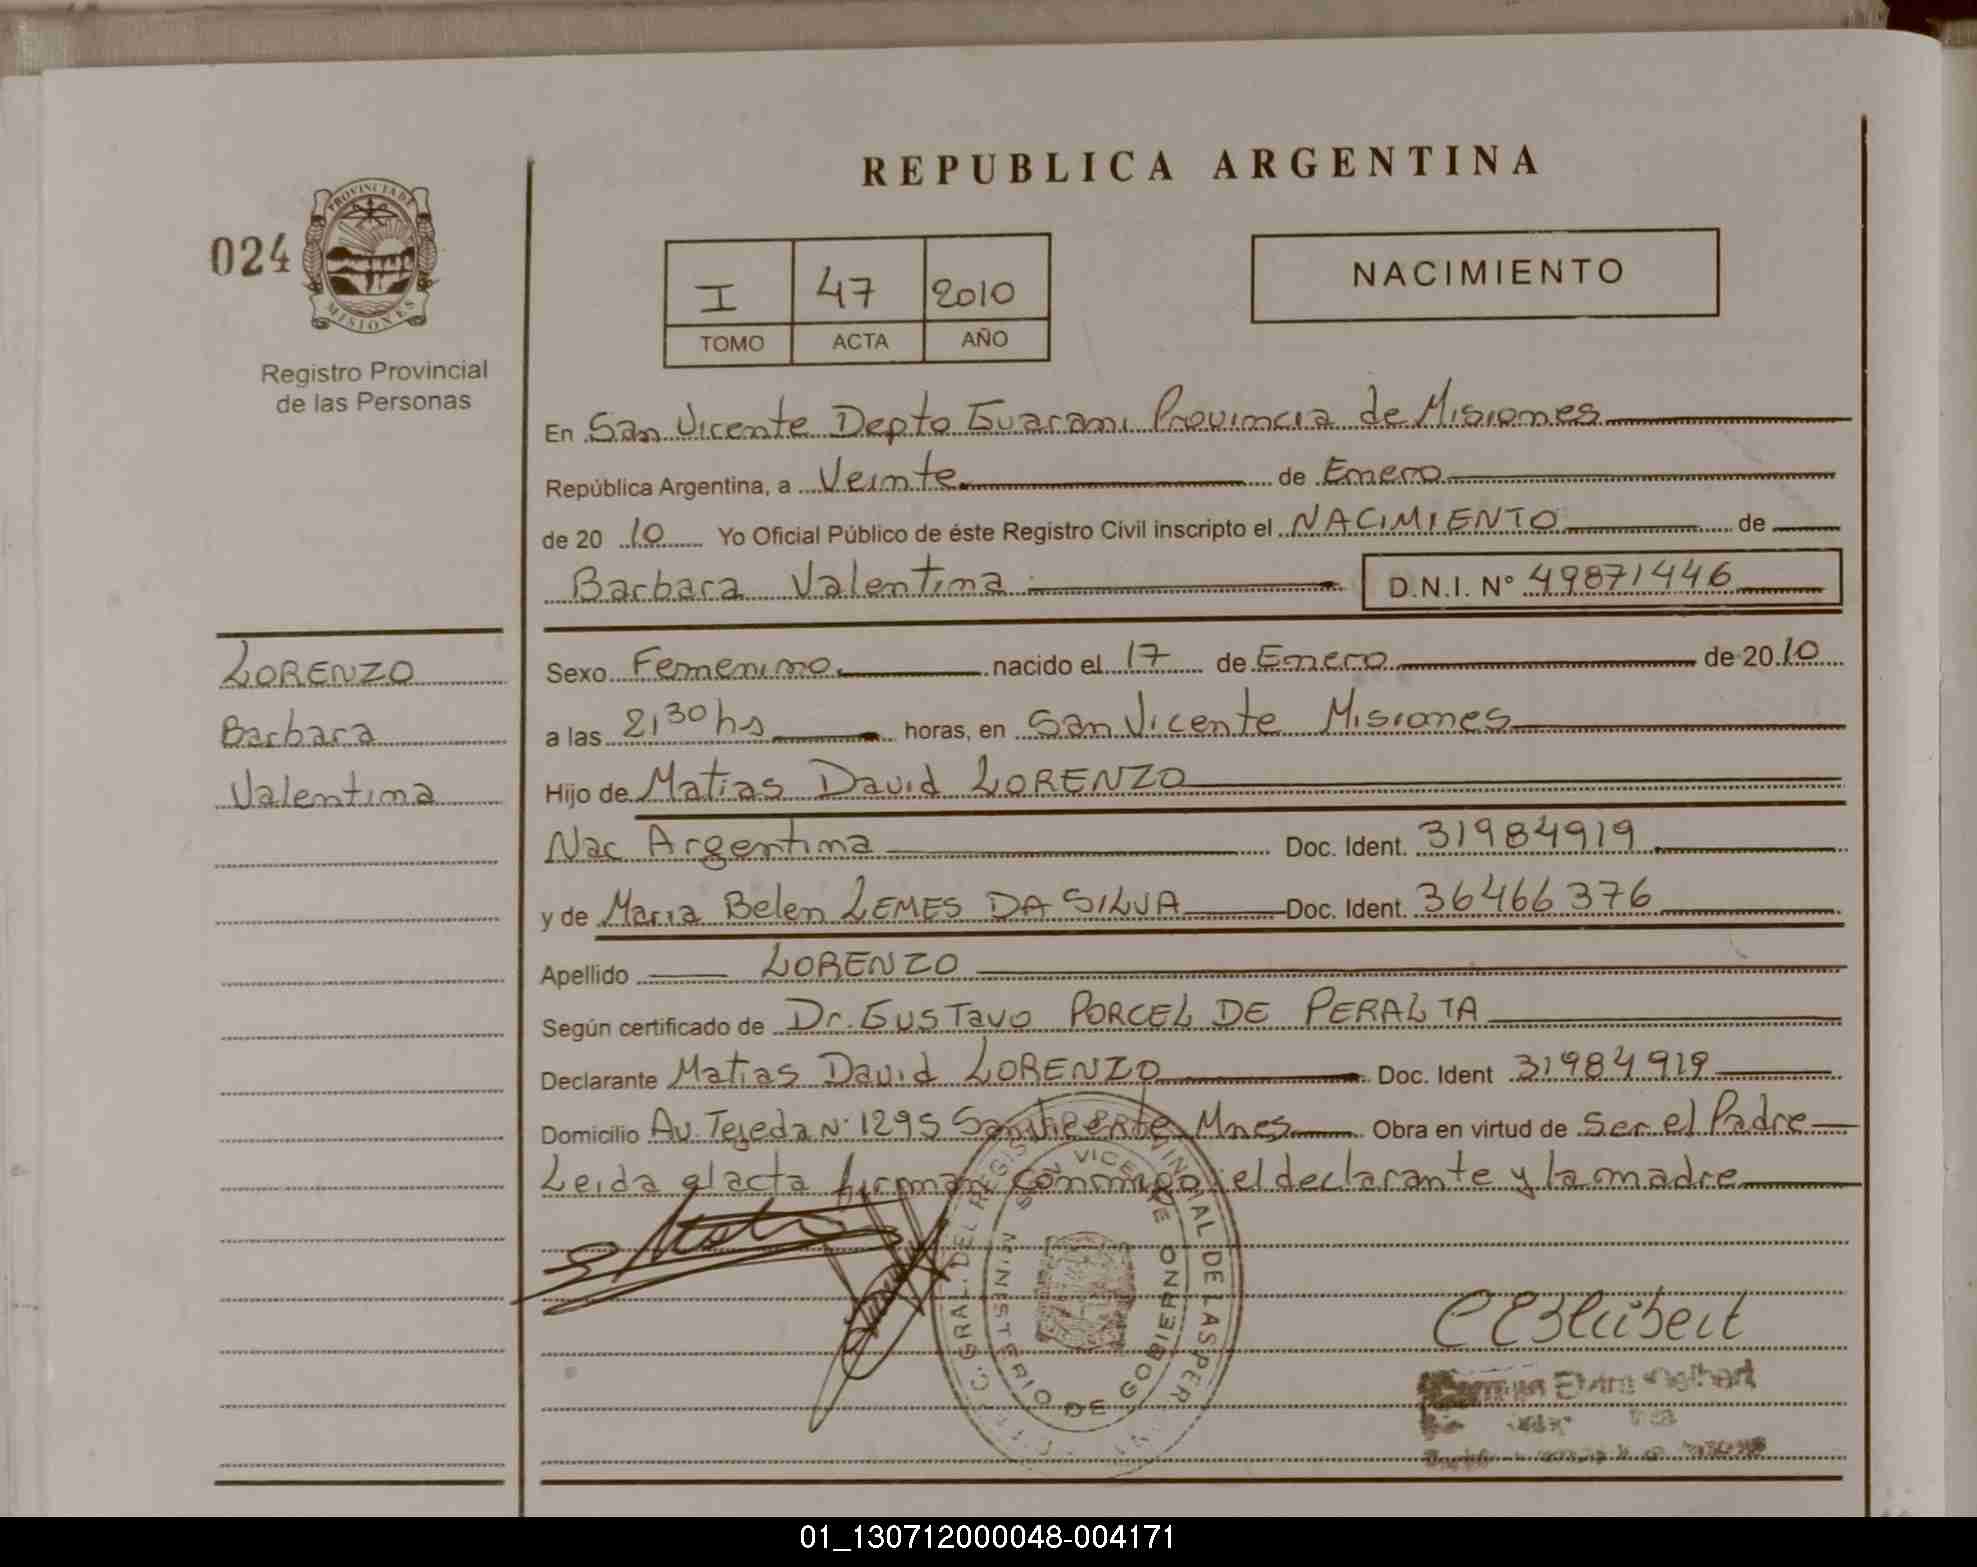 REPUBLICA ARGENTINA
024
PROVINCIA DE
MISIONES
Registro Provincial
de las Personas
I 47 2010
TOMO ACTA AÑO
NACIMIENTO
En San Vicente Depto Guarani Provincia de Misiones
República Argentina, a Veinte de Enero
de 20 10 Yo Oficial Público de éste Registro Civil inscripto el NACIMIENTO de
Barbara Valentina D.N.I. Nº 49871446
LORENZO
Barbara
Valentina
Sexo Femenino nacido el 17 de Enero de 20 10
a las 2,30 hs horas, en San Vicente Misiones
Hijo de Matias David LORENZO
Nac Argentina Doc. Ident. 31984919
y de Maria Belen LEMES DA SILVA Doc. Ident. 36466376
Apellido LORENZO
Según certificado de Dr. GUSTavo PORCEL DE PERALTA
Declarante Matias David LORENZO Doc. Ident 31984919
Domicilio Av. Tejeda Nº 1295 San Vicente Mnes Obra en virtud de Ser el Padre
Leida el acta firman conmigo el declarante y la madre
SAN VICENTE
MINISTERIO DE GOBIERNO
01_130712000048-004171